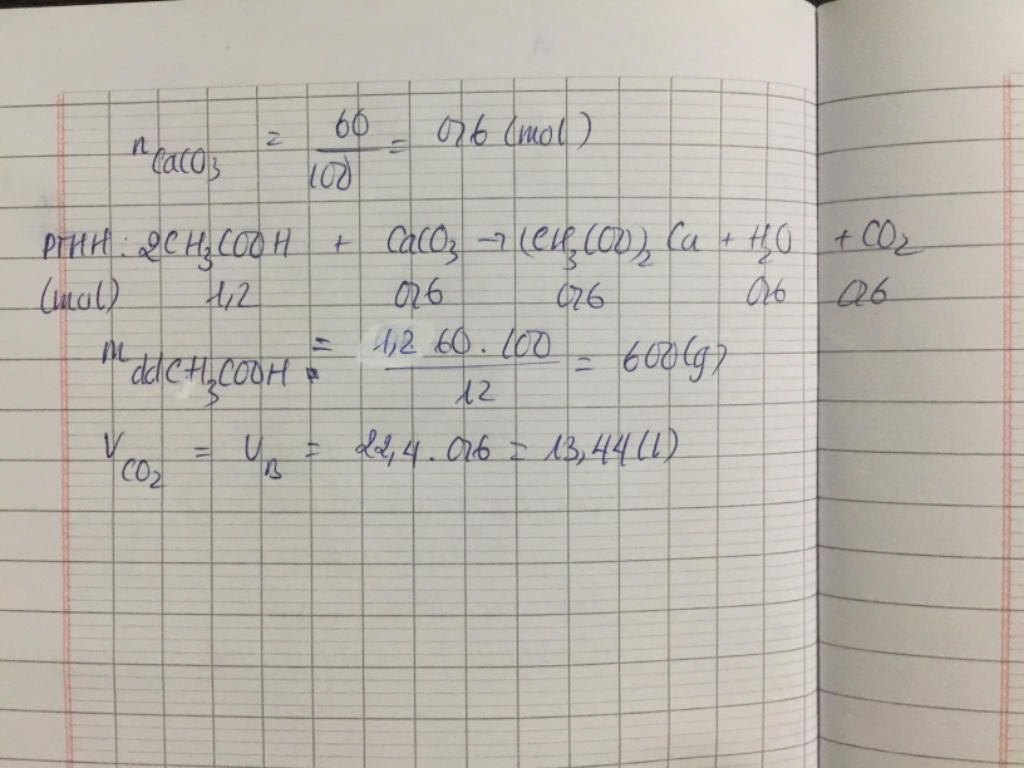 n CaCO3 = 60/100 = 0,6 (mol)
PTHH: 2CH3COOH + CaCO3 → (CH3COO)2 Ca + H2O + CO2
(mol) 1,2 0,6 0,6 0,6 0,6
m ddCH3COOH = 1,2 60.100/12 = 600(g)
V CO2 = V B = 22,4.0,6 = 13,44(l)